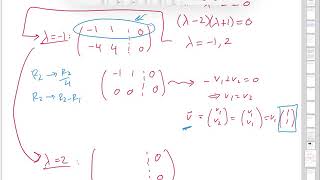 (λ-2)(λ+1) = 0
λ = -1, 2
λ=-1: ( -1 1 ¦ 0
-4 4 ¦ 0 )
R₂ → R₂/4
R₂ → R₂-R₁
( -1 1 ¦ 0
0 0 ¦ 0 )
-v₁+v₂ = 0
⇒ v₁=v₂
v̄ = (v₁ v₂) = (v₁ v₁) = v₁ (1 1)
λ=2: ( ¦ 0
¦ 0 )